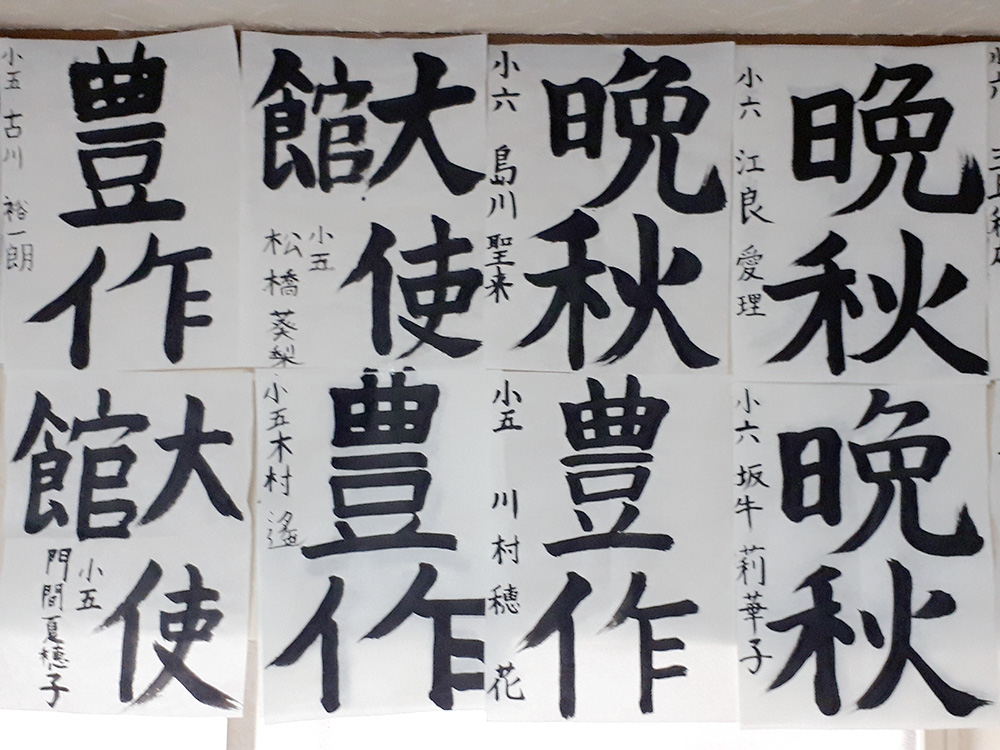 豊作
小五 古川 裕一朗
大使館
小五 松橋 葵梨
晩秋
小六 島川 聖来
晩秋
小六 江良 愛理
小六
大使館
小五 門間夏穂子
豊作
小五 木村 遙
豊作
小五 川村 穂花
晩秋
小六 坂牛 莉華子